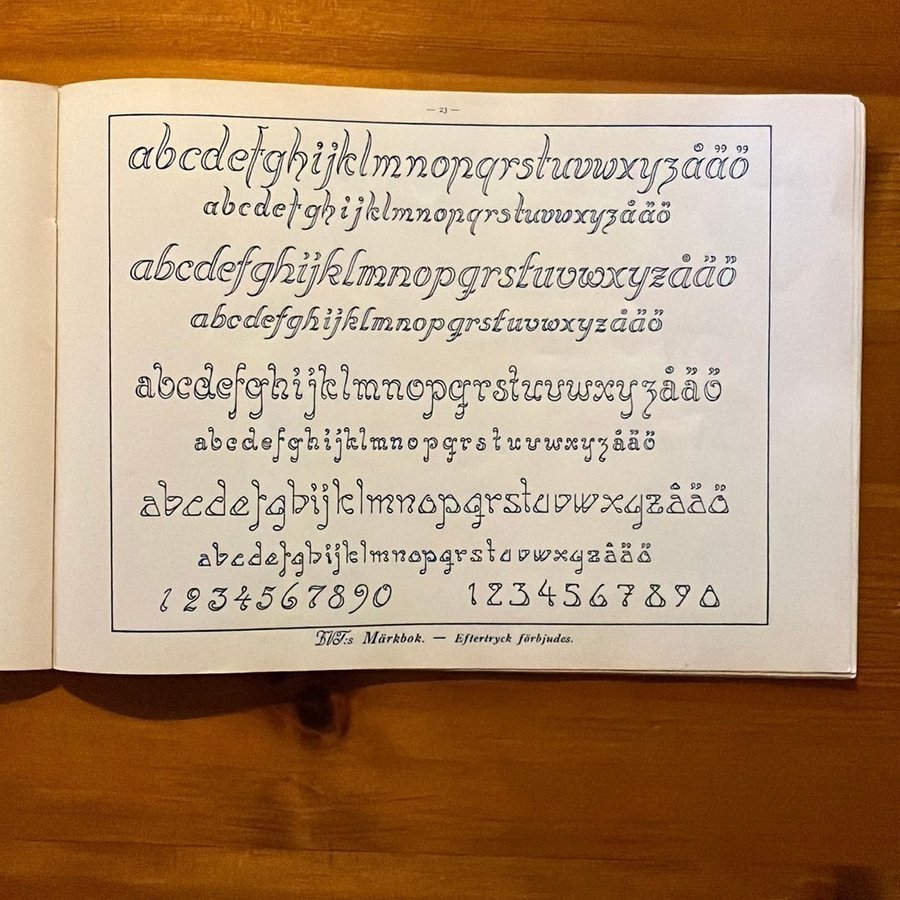 — 23 —
abcdefghijklmnopqrstuvwxyzåäö
abcdefghijklmnopqrstuvwxyzåäö
abcdefghijklmnopqrstuvwxyzåäö
abcdefghijklmnopqrstuvwxyzåäö
abcdefghijklmnopqrstuvwxyzåäö
abcdefghijklmnopqrstuvwxyzåäö
abcdefghijklmnopqrstuvwxyzåäö
abcdefghijklmnopqrstuvwxyzåäö
1234567890 1234567890
Märkbok. — Eftertryck förbjudes.